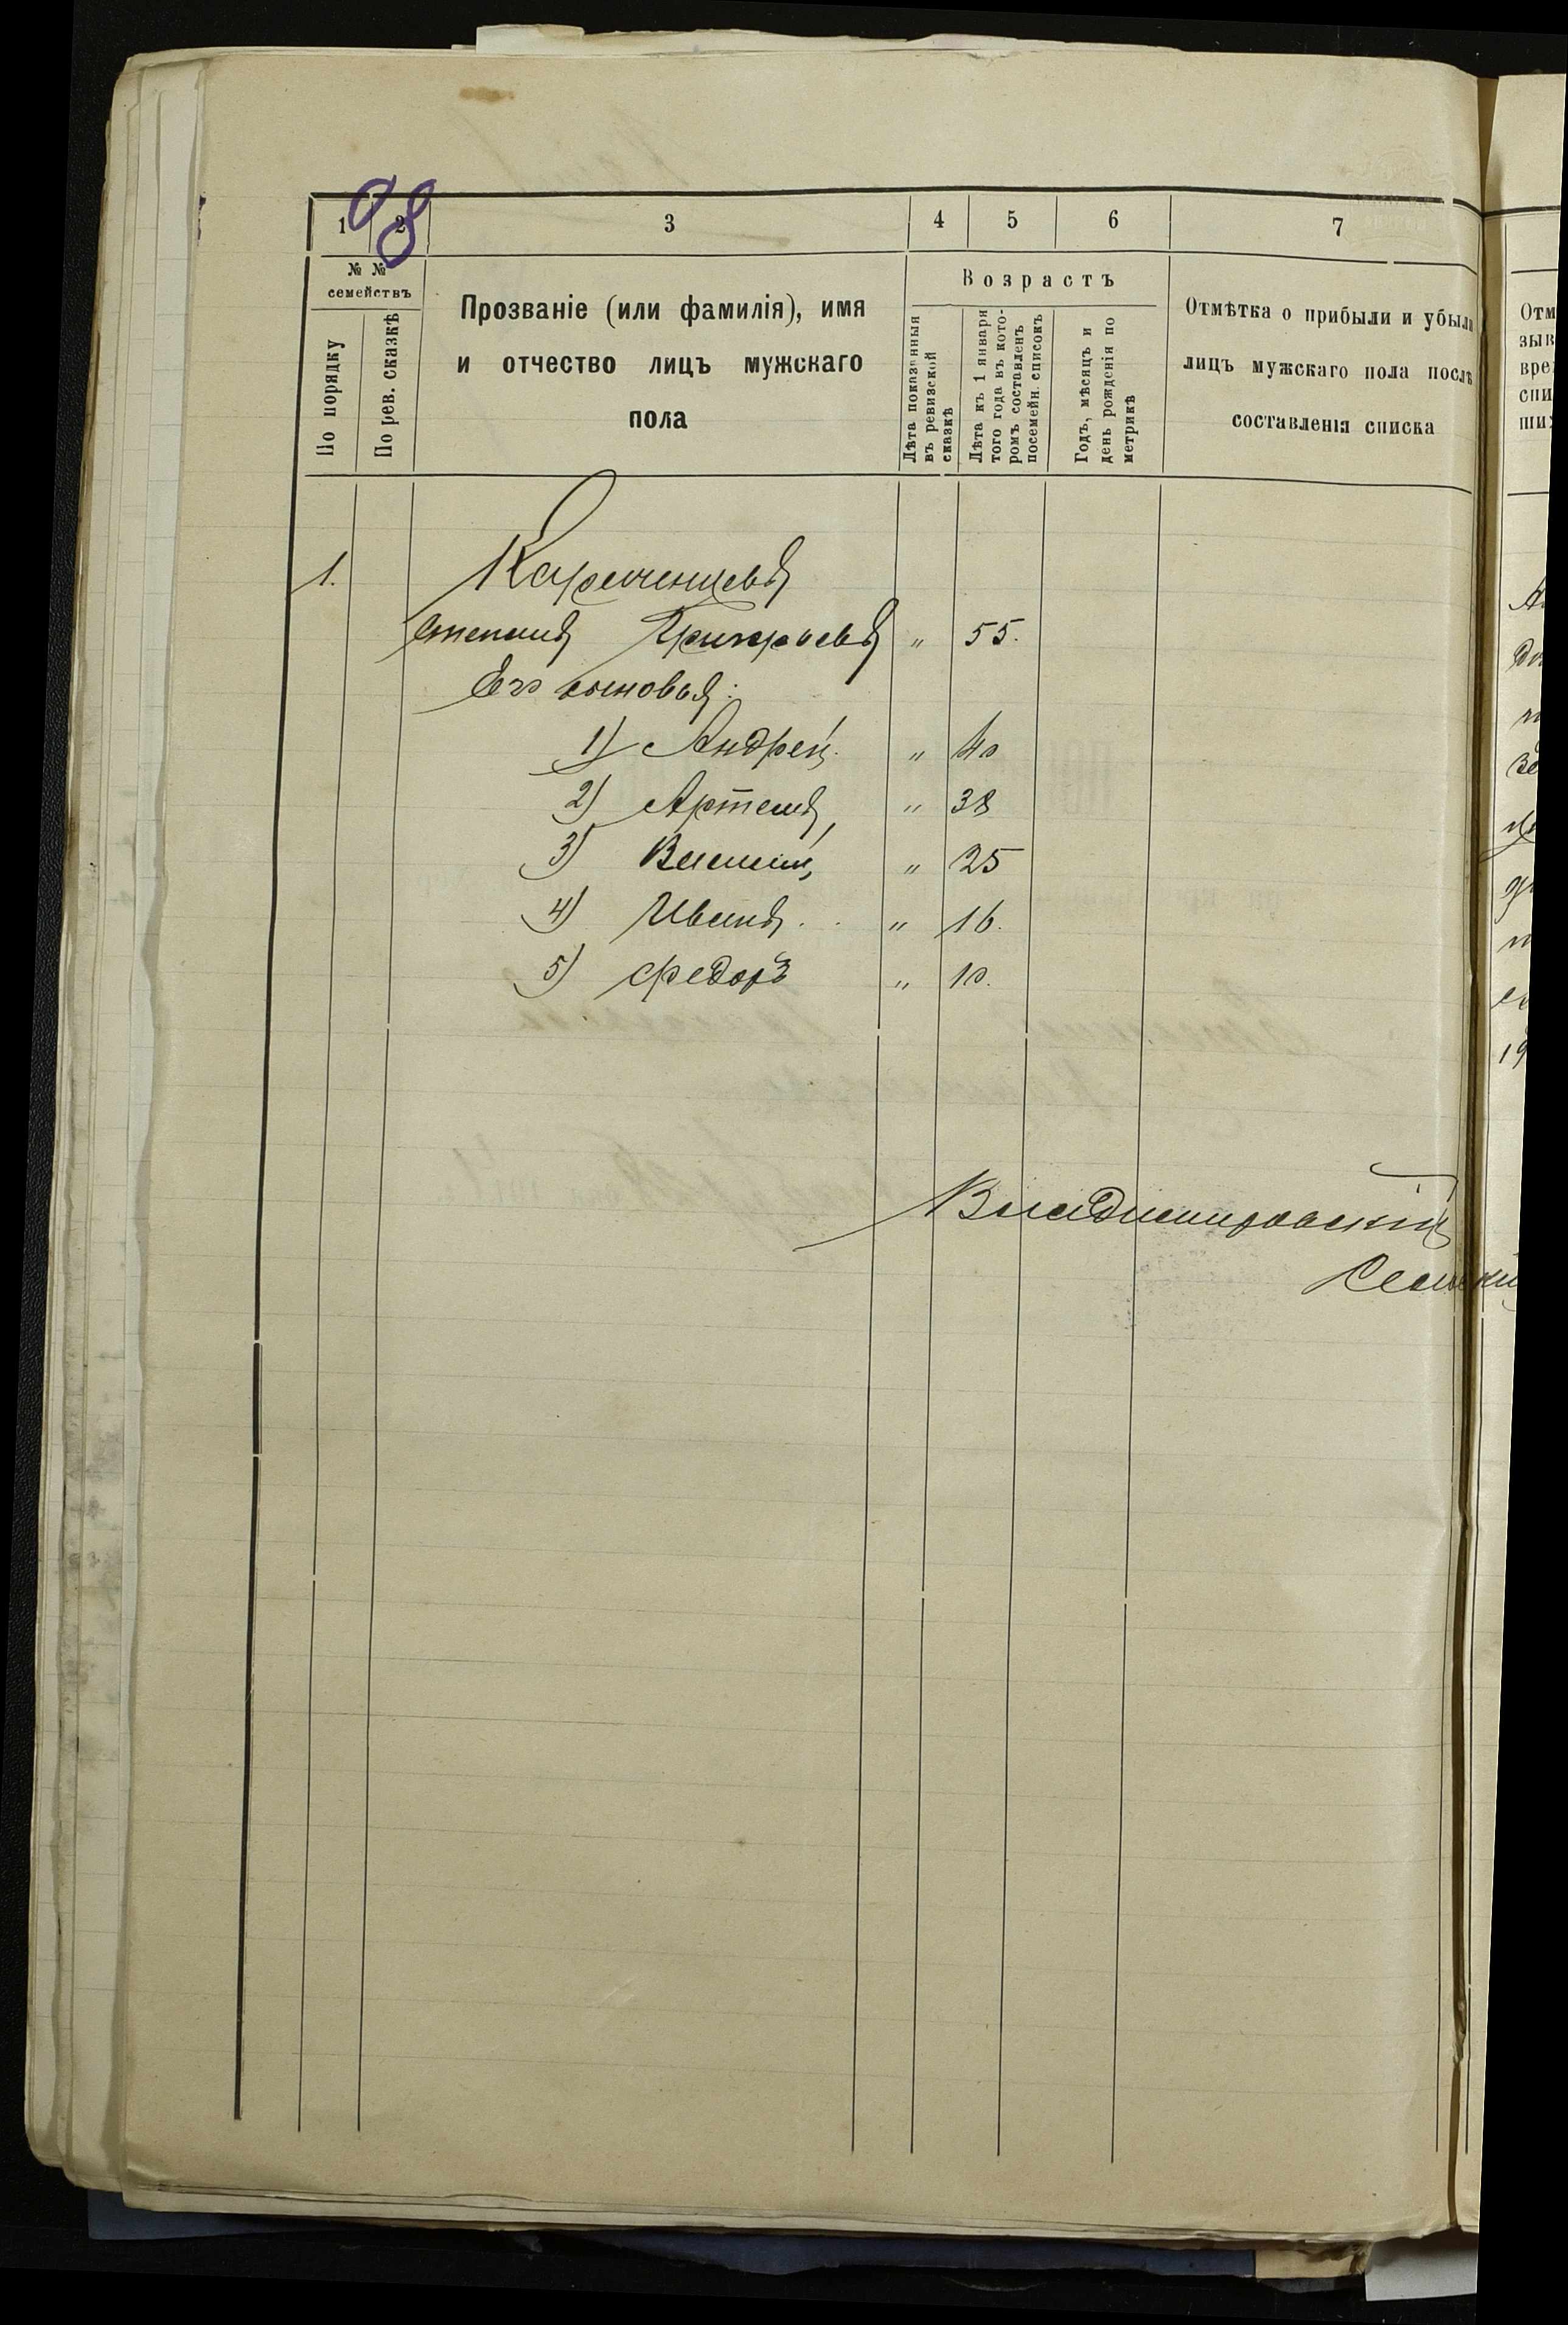 98
1 2 3 4 5 6 7
№ №
семействъ
По порядку
По рев. сказкѣ
Прозваніе (или фамилія), имя
и отчество лицъ мужскаго
пола
Возрастъ
Лѣта показанныя
въ ревизской
сказкѣ
Лѣта къ 1 января
того года въ кото-
ромъ составленъ
посемейн. списокъ
Годъ, мѣсяцъ и
день рожденія по
метрикѣ
Отмѣтка о прибыли и убыли
лицъ мужскаго пола послѣ
составленія списка
1.
Степанъ Григорьевъ " 55.
Его сыновья:
1) Андрей " 40
2) Артемъ, " 38
3) Василий, " 25
4) Иванъ . . " 16.
5) Федоръ " 10.
Владимировскій
Сельскій